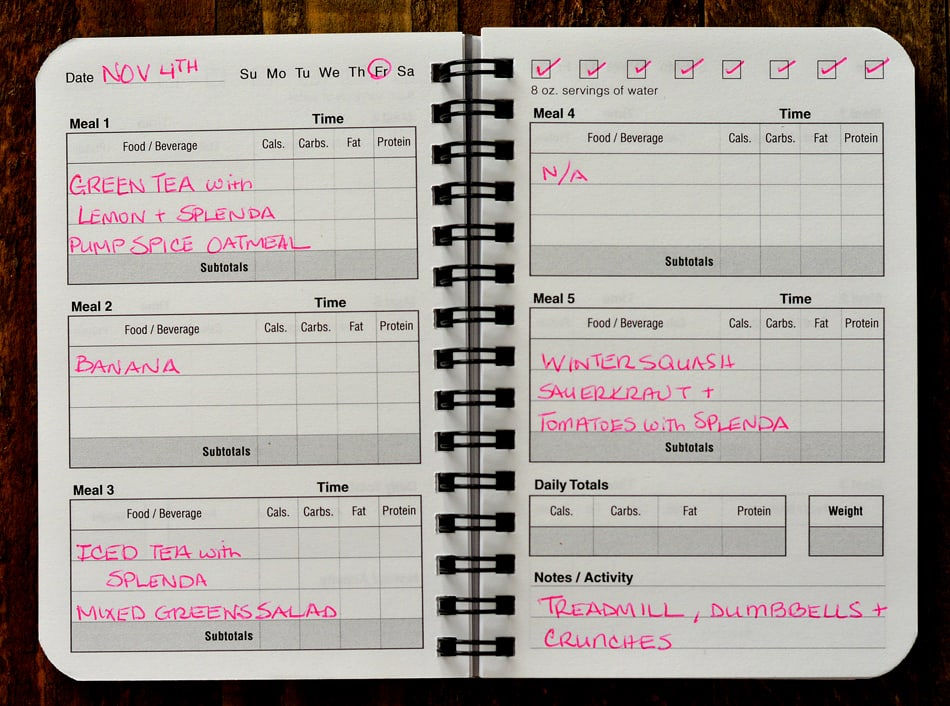 Date NOV 4TH Su Mo Tu We Th Fr Sa
Meal 1 Time
Food / Beverage Cals. Carbs. Fat Protein
GREEN TEA with
LEMON + SPLENDA
PUMP SPICE OATMEAL
Subtotals
Meal 2 Time
Food / Beverage Cals. Carbs. Fat Protein
BANANA
Subtotals
Meal 3 Time
Food / Beverage Cals. Carbs. Fat Protein
ICED TEA with
SPLENDA
MIXED GREENS SALAD
Subtotals
8 oz. servings of water
Meal 4 Time
Food / Beverage Cals. Carbs. Fat Protein
N/A
Subtotals
Meal 5 Time
Food / Beverage Cals. Carbs. Fat Protein
WINTER SQUASH
SAUERKRAUT +
TOMATOES with SPLENDA
Subtotals
Daily Totals
Cals. Carbs. Fat Protein Weight
Notes / Activity
TREADMILL, DUMBBELLS +
CRUNCHES